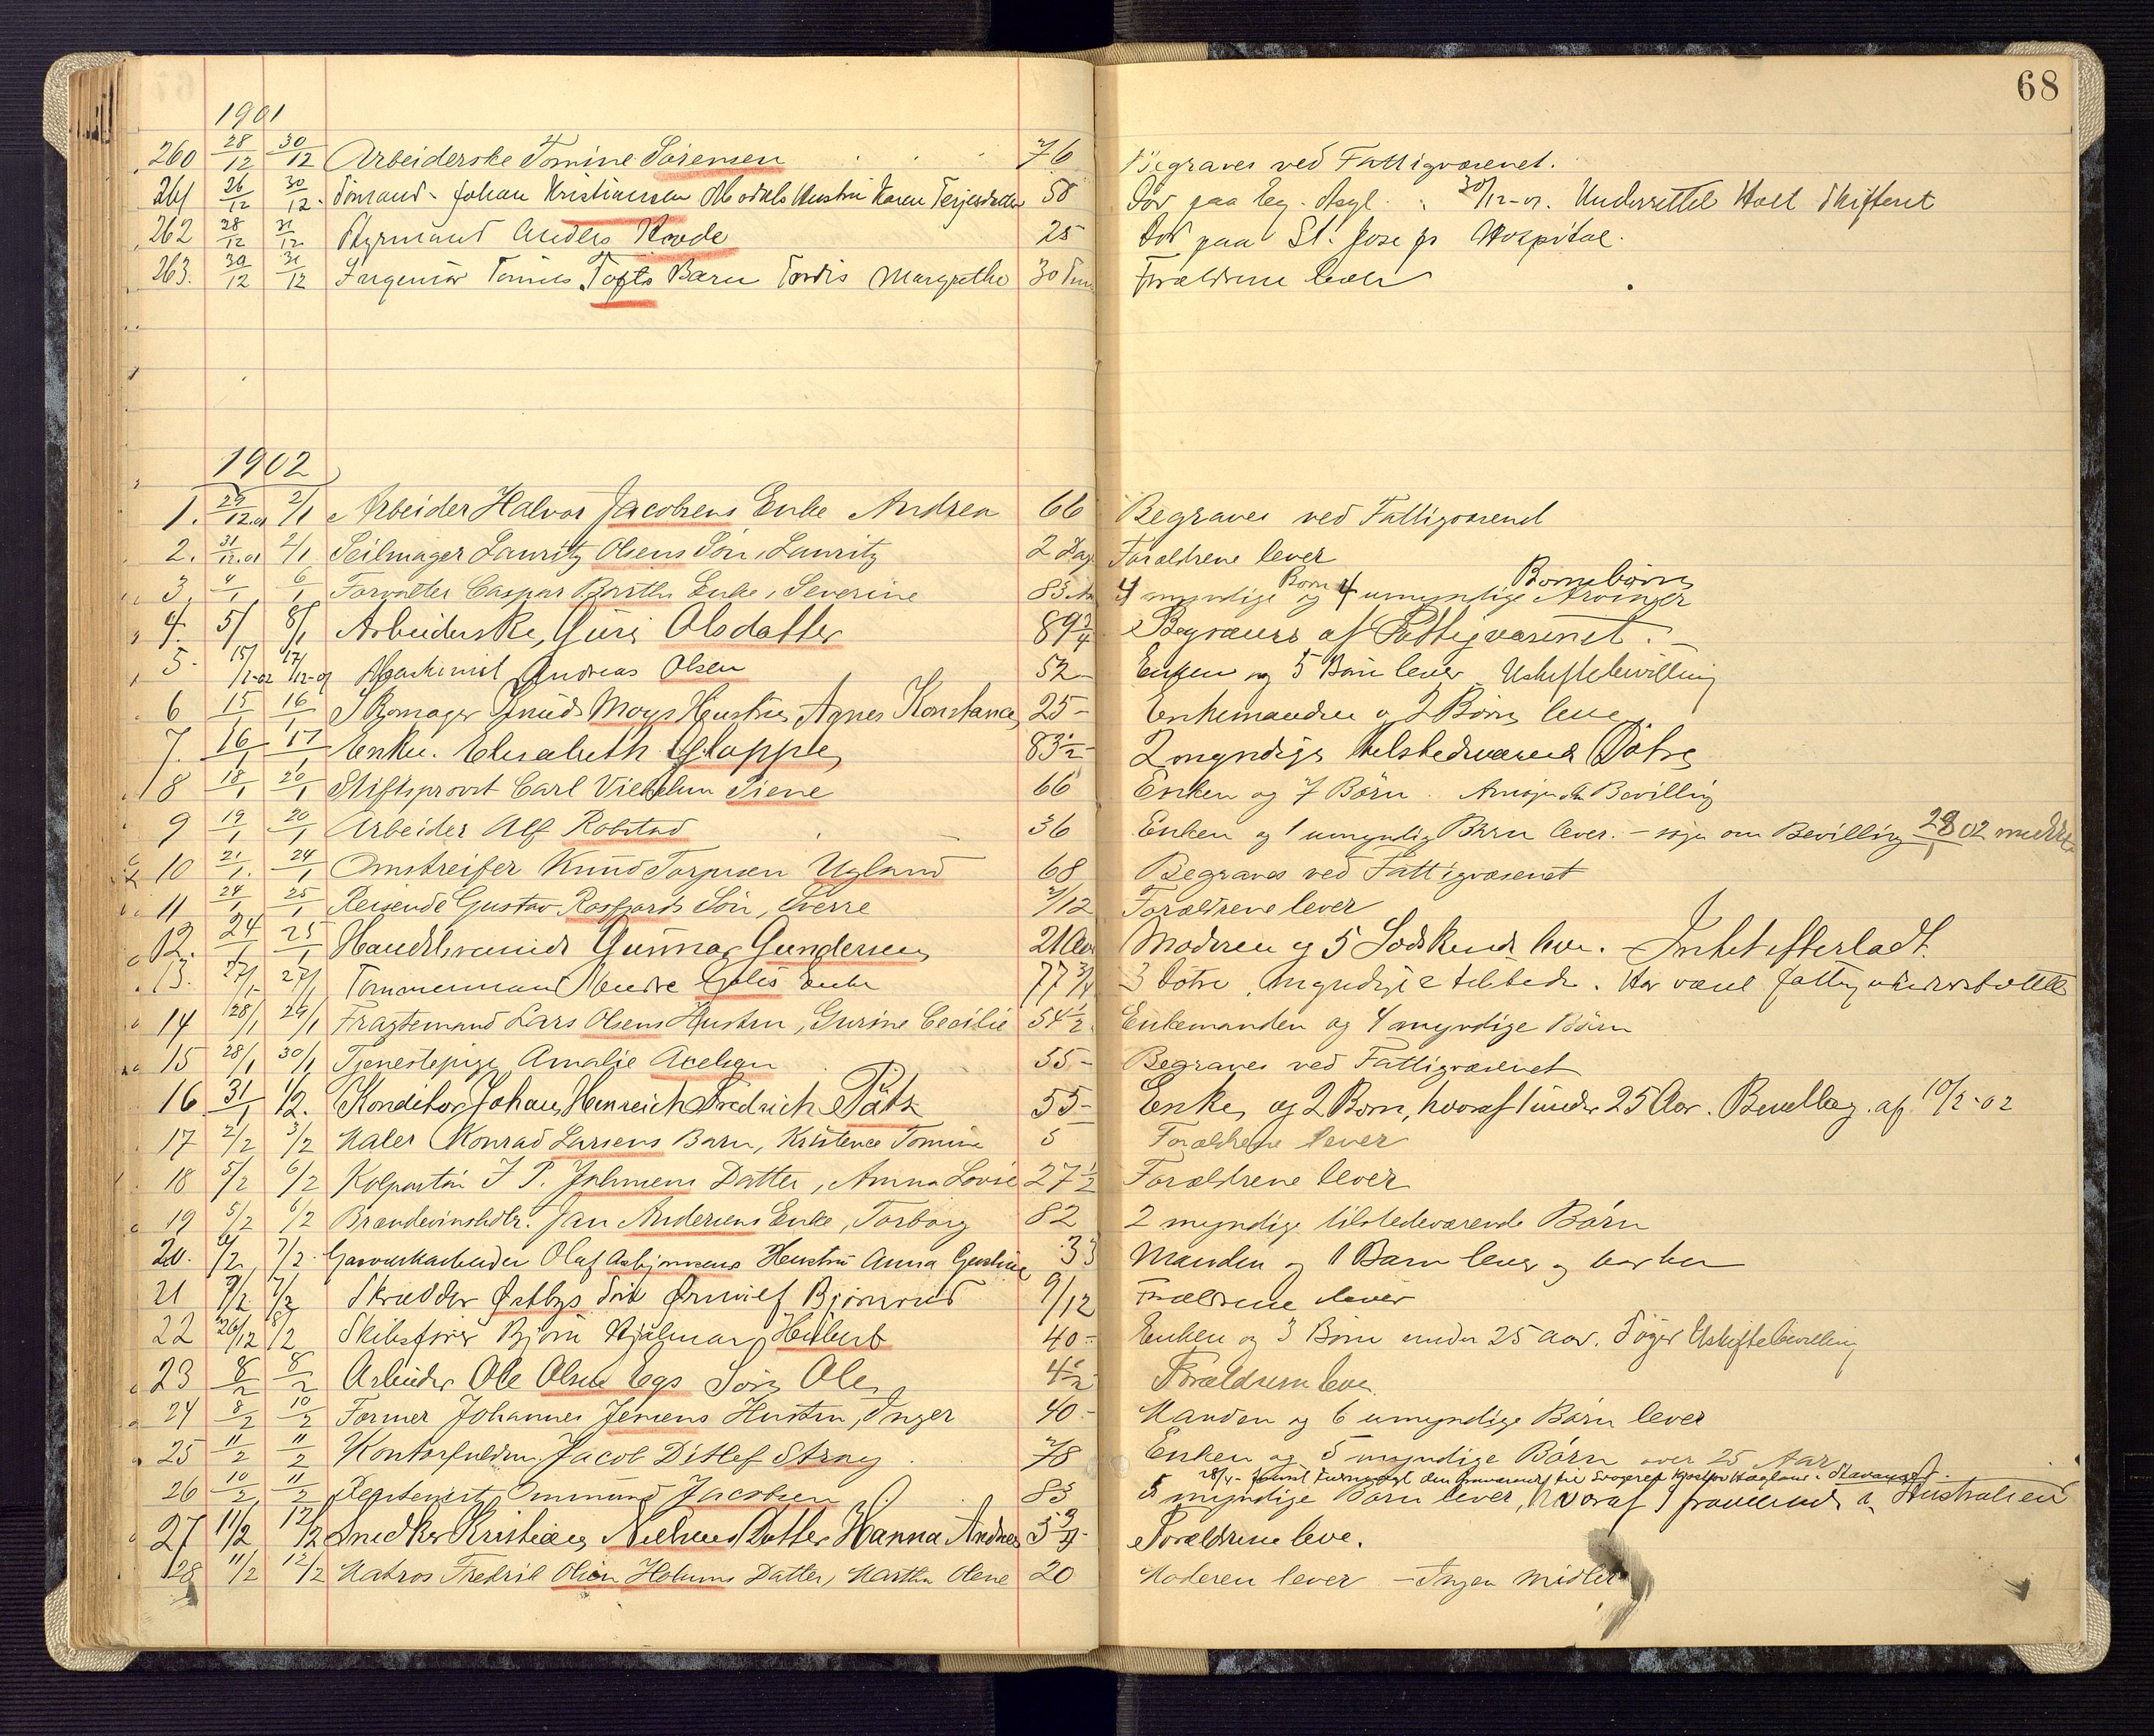 68
1901
260 28/12 30/12 Arbeiderske Tomine Sörensen 76 Begraves ved Fattigvæsenet.
261 26/12 30/12 Tömand Johan Kristiansen Hustru Karen Terjesdatter 58 Död paa Eg. Asyl. 30/12-01. Underrettet Holt Skifteret
262 28/12 31/12 Styrmand Anders Hovde 25 Död paa St. Josefs Hospital.
263. 30/12 31/12 Ingeniör Tofts Barn Tordis Margrethe 30 Tim Forældrene lever
1902
1. 29/12.01 2/1 Arbeider Halvor Jacobsens Enke Andrea 66 Begraves ved Fattigvæsenet
2. 31/12.01 2/1 Seilmager Lauritz Olsens Sön, Lauritz 2 Dag Forældrene lever
3. 4/1 6/1 Forvalter Caspar Barths Enke, Severine 83 4 myndige Börn og 4 umyndige Arvinger Börnebörn
4. 5/ 8/1 Arbeiderske, Guri Olsdatter 89 3/4 Begraves af Fattigvæsenet.
5. Maskinist Andreas Olsen 52 Enken og 5 Börn lever Uskiftebevilling
6 15/1 16/1 Skomager Knud Moys Hustru, Agnes Konstance 25 - Enkemanden og 2 Börn leve
7. 16/1 17/1 Enke. Elisabeth Gloppe 83 1/2 - 2 myndige tilstedeværende Döttre
8 18/1 20/1 Stiftsprovst Carl Vilhelm Siene 66 Enken og 7 Börn. Bevilling
9 19/1 20/1 Arbeider Alf Robstad 36 Enken og 1 umyndig Barn lever. - söger om Bevilling 28/1 02
10 21/1. 24/1 Omstreifer Knud Torjusen Ugland 68 Begraves ved Fattigvæsenet
11 24/1 25/1 Reisende Gustav Sön, Sverre 7/12 Forældrene lever
12. 24/1 25/1 Handelsreisende Gunnar Gundersen 21 Aar Moderen og 5 Södskende leve. - Intet efterladt.
13. 27/1 27/1 Tömmermand Enke 77 3/4 3 Dötre, myndige & tilstede. Har været fattigunderstöttet
14 28/1 29/1 Fragtemand Lars Olsens Hustru, Gurine Cecilie 54 1/2 Enkemanden og 4 myndige Börn
15 28/1 30/1 Tjenestepige Amalie Acelsen 55 - Begraves ved Fattigvæsenet
16 31/1 1/2. Konditor Johan Henreich Fredrich Pätz 55 - Enke og 2 Börn, hvoraf 1 under 25 Aar. Bevilling af 10/2-02
17 2/2 3/2 Maler Konrad Larsens Barn, Kristence Tomine 5 Forældrene lever
18 5/2 6/2 Kolportör I. P. Datter, Anna Lovise 27 1/2 Forældrene lever
19 5/2 6/2 Brændevinshdlr. Jan Andersens Enke, Torborg 82 2 myndige tilstedeværende Börn
20. 6/2 7/2 Garveriarbeider Olaf Asbjörnsens Hustru Anna 33 Manden og 1 Barn lever og bor her
21 7/2 7/2 Skrædder Østbys Sön Björnvud 9/12 Forældrene lever
22 26/12 8/2 Skibsförer Björn Hjalmar Heibert 40 - Enken og 3 Börn under 25 Aar. Söger Uskiftebevilling
23 8/2 8/2 Arbeider Ole Olsen Egs Sön Ole 4 1/2 Forældrene leve.
24 8/2 10/2 Former Johannes Jensens Hustru, Inger 40 - Manden og 6 umyndige Börn lever
25 11/2 11/2 Kontorfuldm. Jacob Ditlef Stray 78 Enken og 5 myndige Börn over 25 Aar
26 10/2 11/2 Repslager Ommund Jacobsen 83 5 myndige Börn lever, hvoraf 1 fraværende i Australien
27 11/2 12/2 Snedker Kristian Nielsens Datter Hanna Andrea 5 3/4 Forældrene leve.
28 11/2 12/2 Matros Fredrik Olsen Holums Datter, Martha Olene 20 Moderen lever - Ingen midler